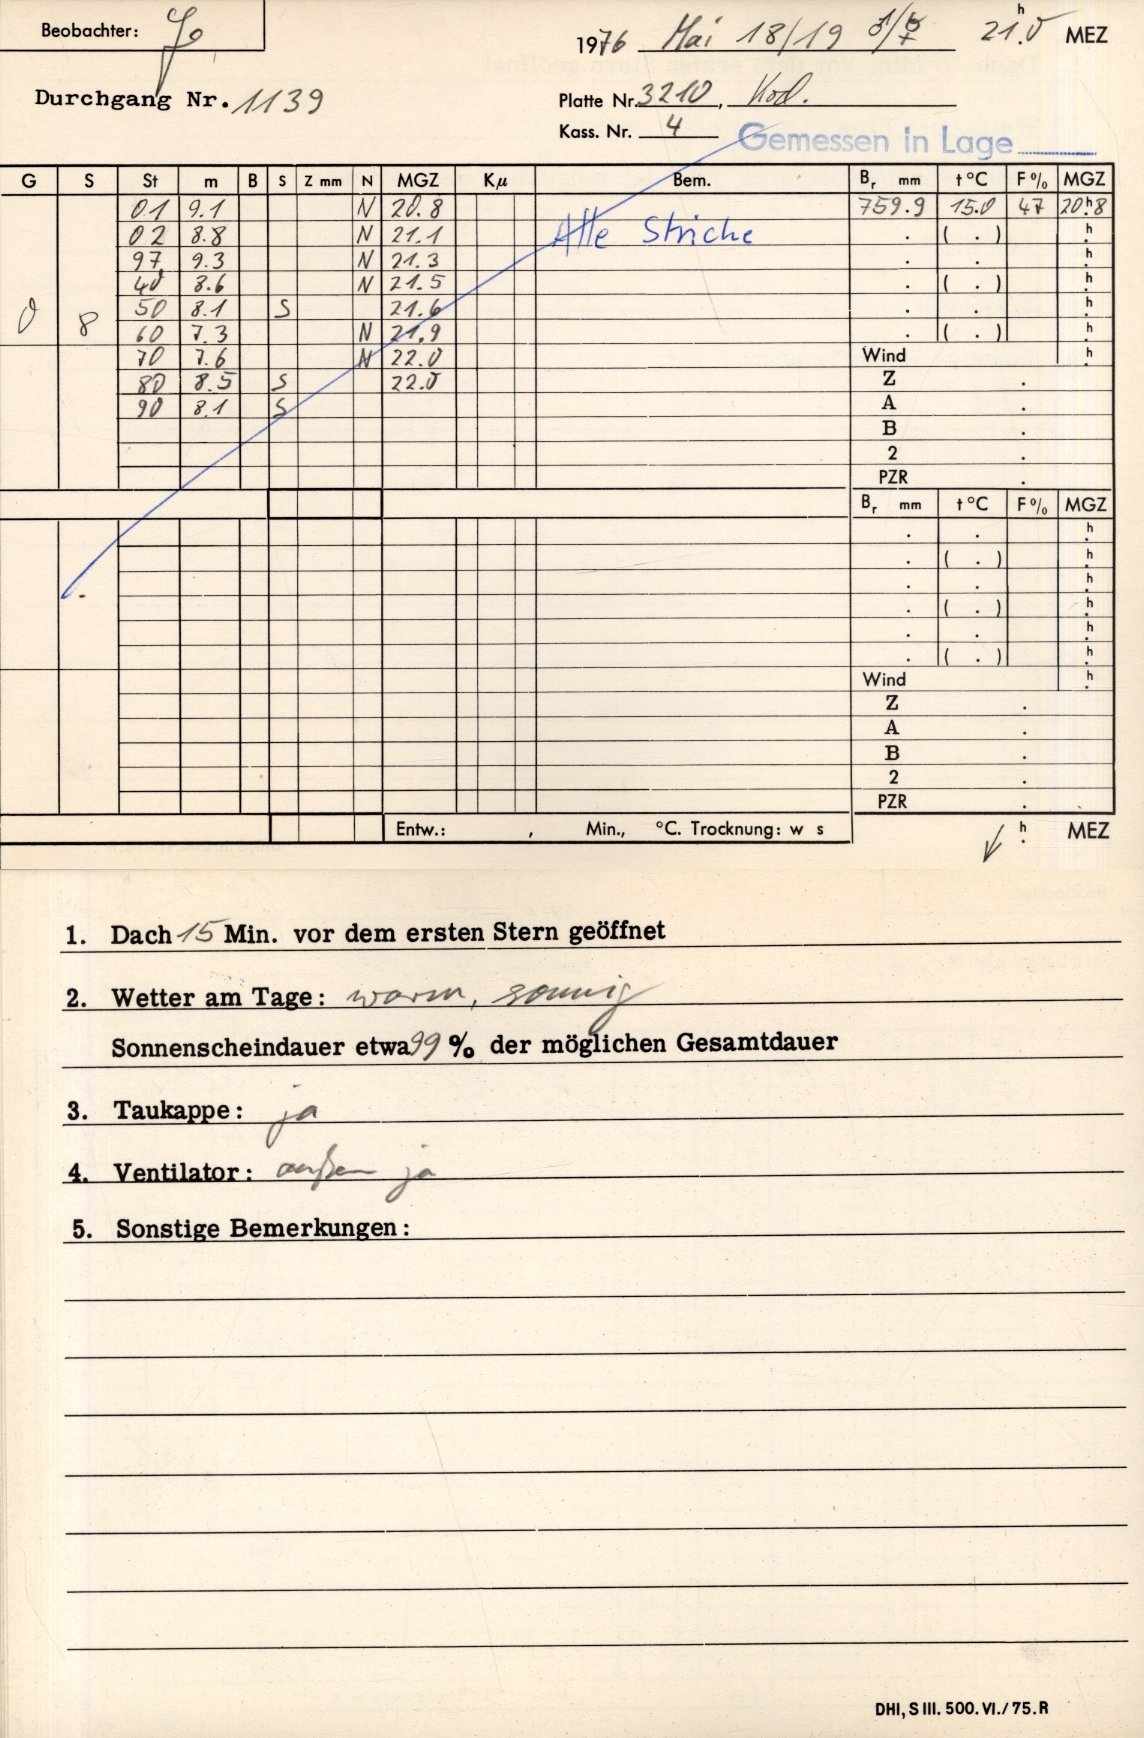 Beobachter: Jo
1976 Mai 18/19 ♂/♄♀ 21h.0 MEZ
Durchgang Nr. 1139
Platte Nr. 3210, Kod.
Kass. Nr. 4
Gemessen in Lage
G S St m B S Z mm N MGZ Kμ Bem. Br mm t °C F % MGZ
01 9.1 N 20.8 759.9 15.0 47 20h.8
02 8.8 N 21.1 Alte Striche . ( . ) h.
97 9.3 N 21.3 . . h.
40 8.6 N 21.5 . ( . ) h.
0 8 50 8.1 S 21.6 . . h.
60 7.3 N 21.9 . ( . ) h.
70 7.6 N 22.0 Wind h.
80 8.5 S 22.0 Z .
90 8.1 S A .
B .
2 .
PZR .
Br mm t °C F % MGZ
. . h.
. ( . ) h.
. . h.
. ( . ) h.
. . h.
. ( . ) h.
Wind h.
Z .
A .
B .
2 .
PZR .
Entw.: , Min., °C. Trocknung: w s h. MEZ
1. Dach 15 Min. vor dem ersten Stern geöffnet
2. Wetter am Tage: warm, sonnig
Sonnenscheindauer etwa 99 % der möglichen Gesamtdauer
3. Taukappe: ja
4. Ventilator: außen ja
5. Sonstige Bemerkungen:
DHI, S III. 500. VI./75. R